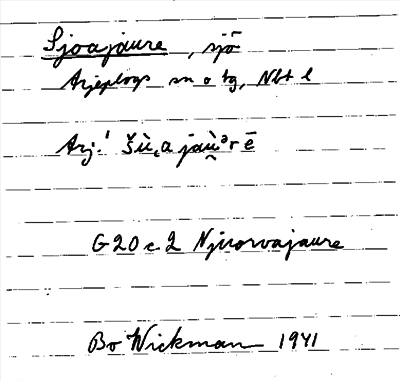 Sjoajaure, sjö
Arjeplogs sn o tg, Nbt l
Arj. Šu̇̀ꞏa jaù̯ᵊrē
G20 c 2 Njuorvajaure
Bo Wickman 1941